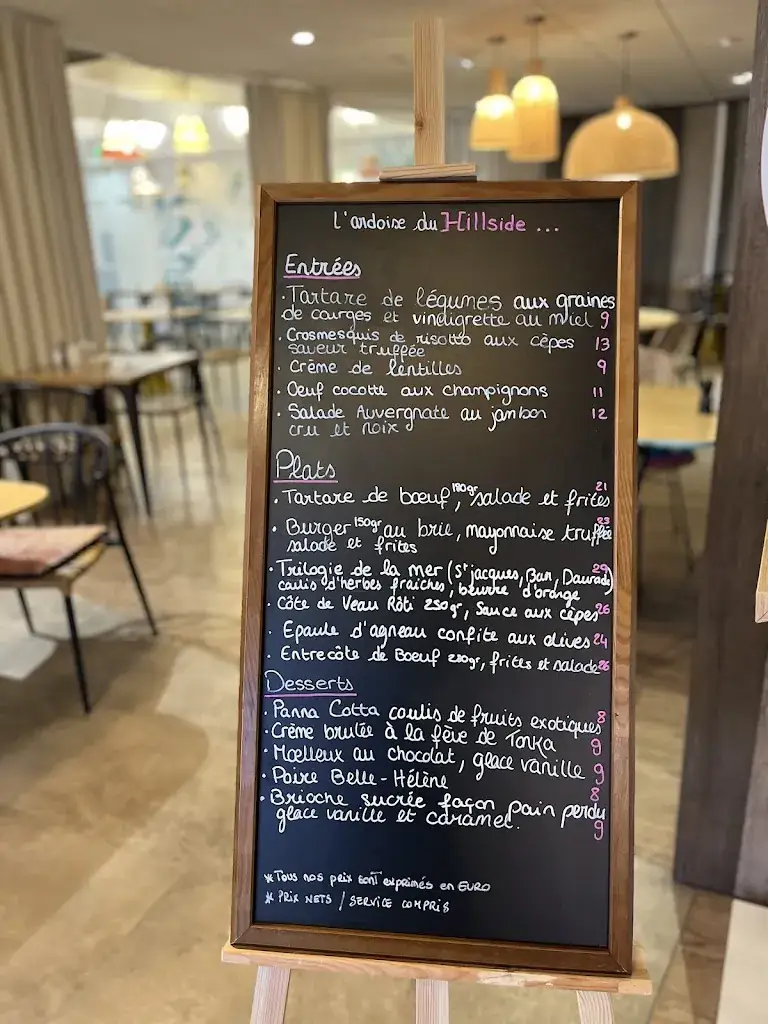 L'ardoise du Hillside ...
Entrées
· Tartare de légumes aux graines
de courges et vinaigrette au miel 9
· Crosmesquis de risotto aux cèpes 13
saveur truffée
· Crème de lentilles 9
· Oeuf cocotte aux champignons 11
· Salade Auvergnate au jambon 12
cru et noix
Plats
· Tartare de bœuf, 180gr salade et frites 21
· Burger 150gr au brie, mayonnaise truffée 23
salade et frites
· Trilogie de la mer (St jacques, Bar, Daurade) 29
coulis d'herbes fraiches, beurre d'orange
· Côte de Veau Rôti 250gr, Sauce aux cèpes 26
· Epaule d'agneau confite aux olives 24
· Entrecôte de Boeuf 250gr, frites et salade 26
Desserts
· Panna Cotta coulis de fruits exotiques 8
· Crème brulée à la fève de Tonka 9
· Mœlleux au chocolat, glace vanille 9
· Poire Belle-Hélène 8
· Brioche sucrée façon pain perdu
glace vanille et caramel. 9
* Tous nos prix sont exprimés en EURO
* PRIX NETS / SERVICE COMPRIS